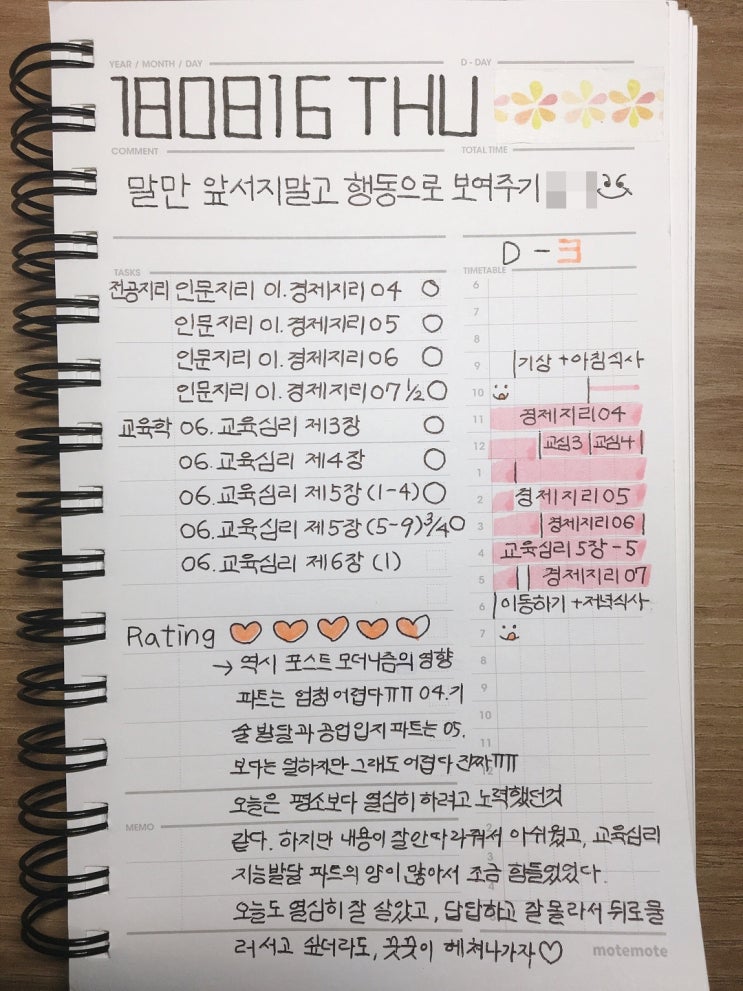 YEAR / MONTH / DAY
D - DAY
180816 THU
COMMENT
TOTAL TIME
말만 앞서지말고 행동으로 보여주기
D - 3
TASKS
TIMETABLE
전공지리 인문지리 01. 경제지리 04 ○
인문지리 01. 경제지리 05 ○
인문지리 01. 경제지리 06 ○
인문지리 01. 경제지리 07 1/2 ○
교육학 06. 교육심리 제3장 ○
06. 교육심리 제4장 ○
06. 교육심리 제5장 (1-4) ○
06. 교육심리 제5장 (5-9) 3/4 ○
06. 교육심리 제6장 (1)
6
7
8
9 기상 + 아침식사
10
11 경제지리 04
12 교심3 교심4
1
2 경제지리 05
3 경제지리 06
4 교육심리 5장 - 5
5 경제지리 07
6 이동하기 + 저녁식사
7
8
9
10
11
12
2
3
Rating
→ 역시 포스트 모더니즘의 영향
파트는 엄청 어렵다ㅠㅠ 04. 기
술 발달과 공업입지 파트는 05.
보다는 덜하지만 그래도 어렵다 진짜ㅠㅠ
오늘은 평소보다 열심히 하려고 노력했던것
MEMO
같다. 하지만 내용이 잘 안따라줘서 아쉬웠고, 교육심리
지능발달 파트의 양이 많아서 조금 힘들었었다.
오늘도 열심히 잘 살았고, 답답하고 잘 몰라서 뒤로 물
러서고 싶더라도, 꿋꿋이 헤쳐나가자♡
motemote